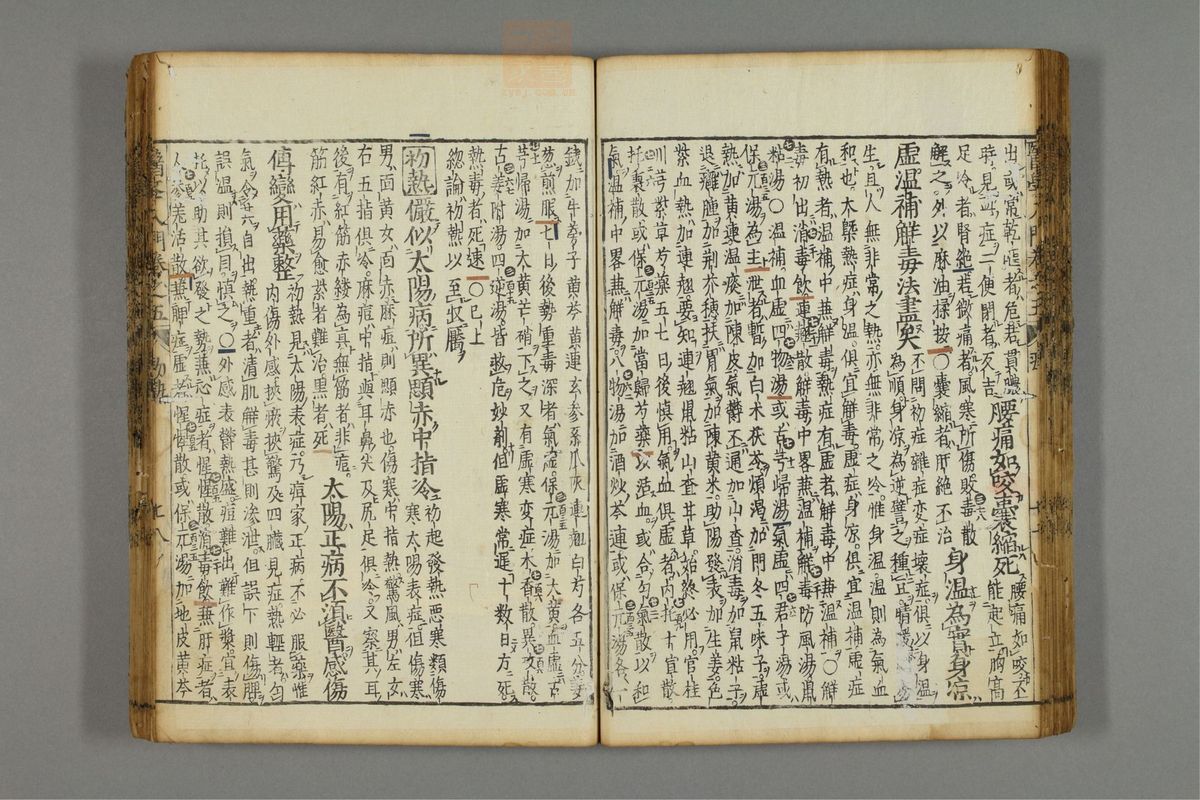 出或常乾嘔者危若貫膿
時見此症二便閉者反吉腰痛如咬囊縮死腰痛如咬不
足冷者腎絶若微痛者風寒所傷敗毒散能起立胸高
解之外以麻油揉按〇囊縮者肝絶不治身温為實身凉
虚温補解毒法盡矣不問初症雜症変症壊症俱以身温
為順身凉為逆譬之種豆晴
生且人無非常之熱亦無非常之冷惟身温温則為氣血
和也大槩熱症身温俱宜解毒虚症身凉俱宜温補虚症
有熱者温補中兼解毒熱症有虚者解毒中兼温補〇解
毒初出消毒飲連翹散解毒中畧兼温補解毒防風湯鼠
粘湯〇温補血虚四物湯或古芎歸湯氣虚四君子湯或
保元湯為主泄者暫加白术茯苓煩渴加門冬五味子虚
熱加黄連温痰加陳皮氣鬱不通加山查消毒加鼠粘子
退癰腫加荆芥穗扶胃氣加陳黄米助陽發表加生姜色
紫血熱加連翹要知連翹鼠粘山查甘草始終必用官桂
川芎紫草芍薬五七日後慎用氣血俱虚者内托十宣散
托裏散或保元湯加當歸芍藥以活血或合匀氣散以和
氣温補中畧兼解毒八物湯加酒炒芩連或保元湯各
錢加牛蒡子黄芩黄連玄參絲瓜灰連翹白芍各五分姜
葱煎服七日後勢重毒深者氣虚保元湯加大黄血虚古
芎歸湯加大黄芒硝下之又有虚寒変症木香散異攻散
古姜附湯四逆湯皆救危妙劑但虚寒常遲十數日方死
熱毒者死速〇已上
総論初熱以至收靨
初熱儼似太陽病所異顋赤中指冷初起發熱悪寒類傷
寒太陽表症但傷寒
男面黄女面赤麻症則顋赤也傷寒中指熱驚風男左女
右五指俱冷麻痘中指與耳鼻尖及尻足俱冷又察其耳
後有紅筋赤縷為真無筋者非痘太陽正病不須醫感傷
筋紅赤易愈紫者難治黒者死
傳變用藥整初熱見太陽表症乃痘家正病不必服藥惟
内傷外感挾痰挾驚及四臟見症熱輕者匀
氣令其自出熱重者清肌解毒甚則滲泄但誤下則傷脾
誤温則損目慎之〇外感表鬱熱盛痘難出難作漿宜表
托以助其欲發之勢兼心症者惺惺散消毒飲兼肝症者
人參羌活散兼脾症虚者惺惺散或保元湯加地皮黄芩